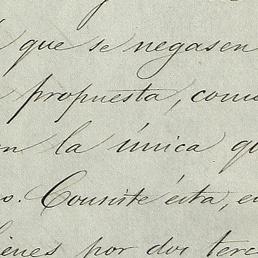 que se negasen
propuesta, como
la única
Consiste ésta, e
bienes por dos terc